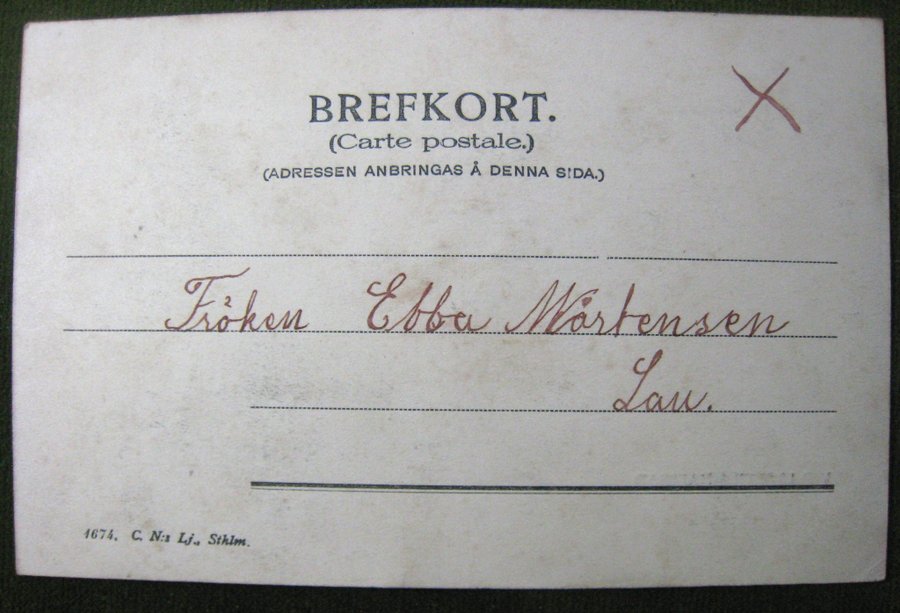 BREFKORT.
(Carte postale.)
(ADRESSEN ANBRINGAS Å DENNA SIDA.)
Fröken Ebba Mårtensen
Lau.
4674. C. N:s Lj., Sthlm.